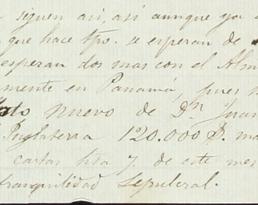 siguen asi, asi aunque ya
que hace tpo. se esperan de
esperan dos mas con el Alm
mente en Panamá, pues
nuevo de Dn. Juan
Inglaterra 120.000 P. m
cartas hta 7 de este mes
tranquilidad sepulcral.